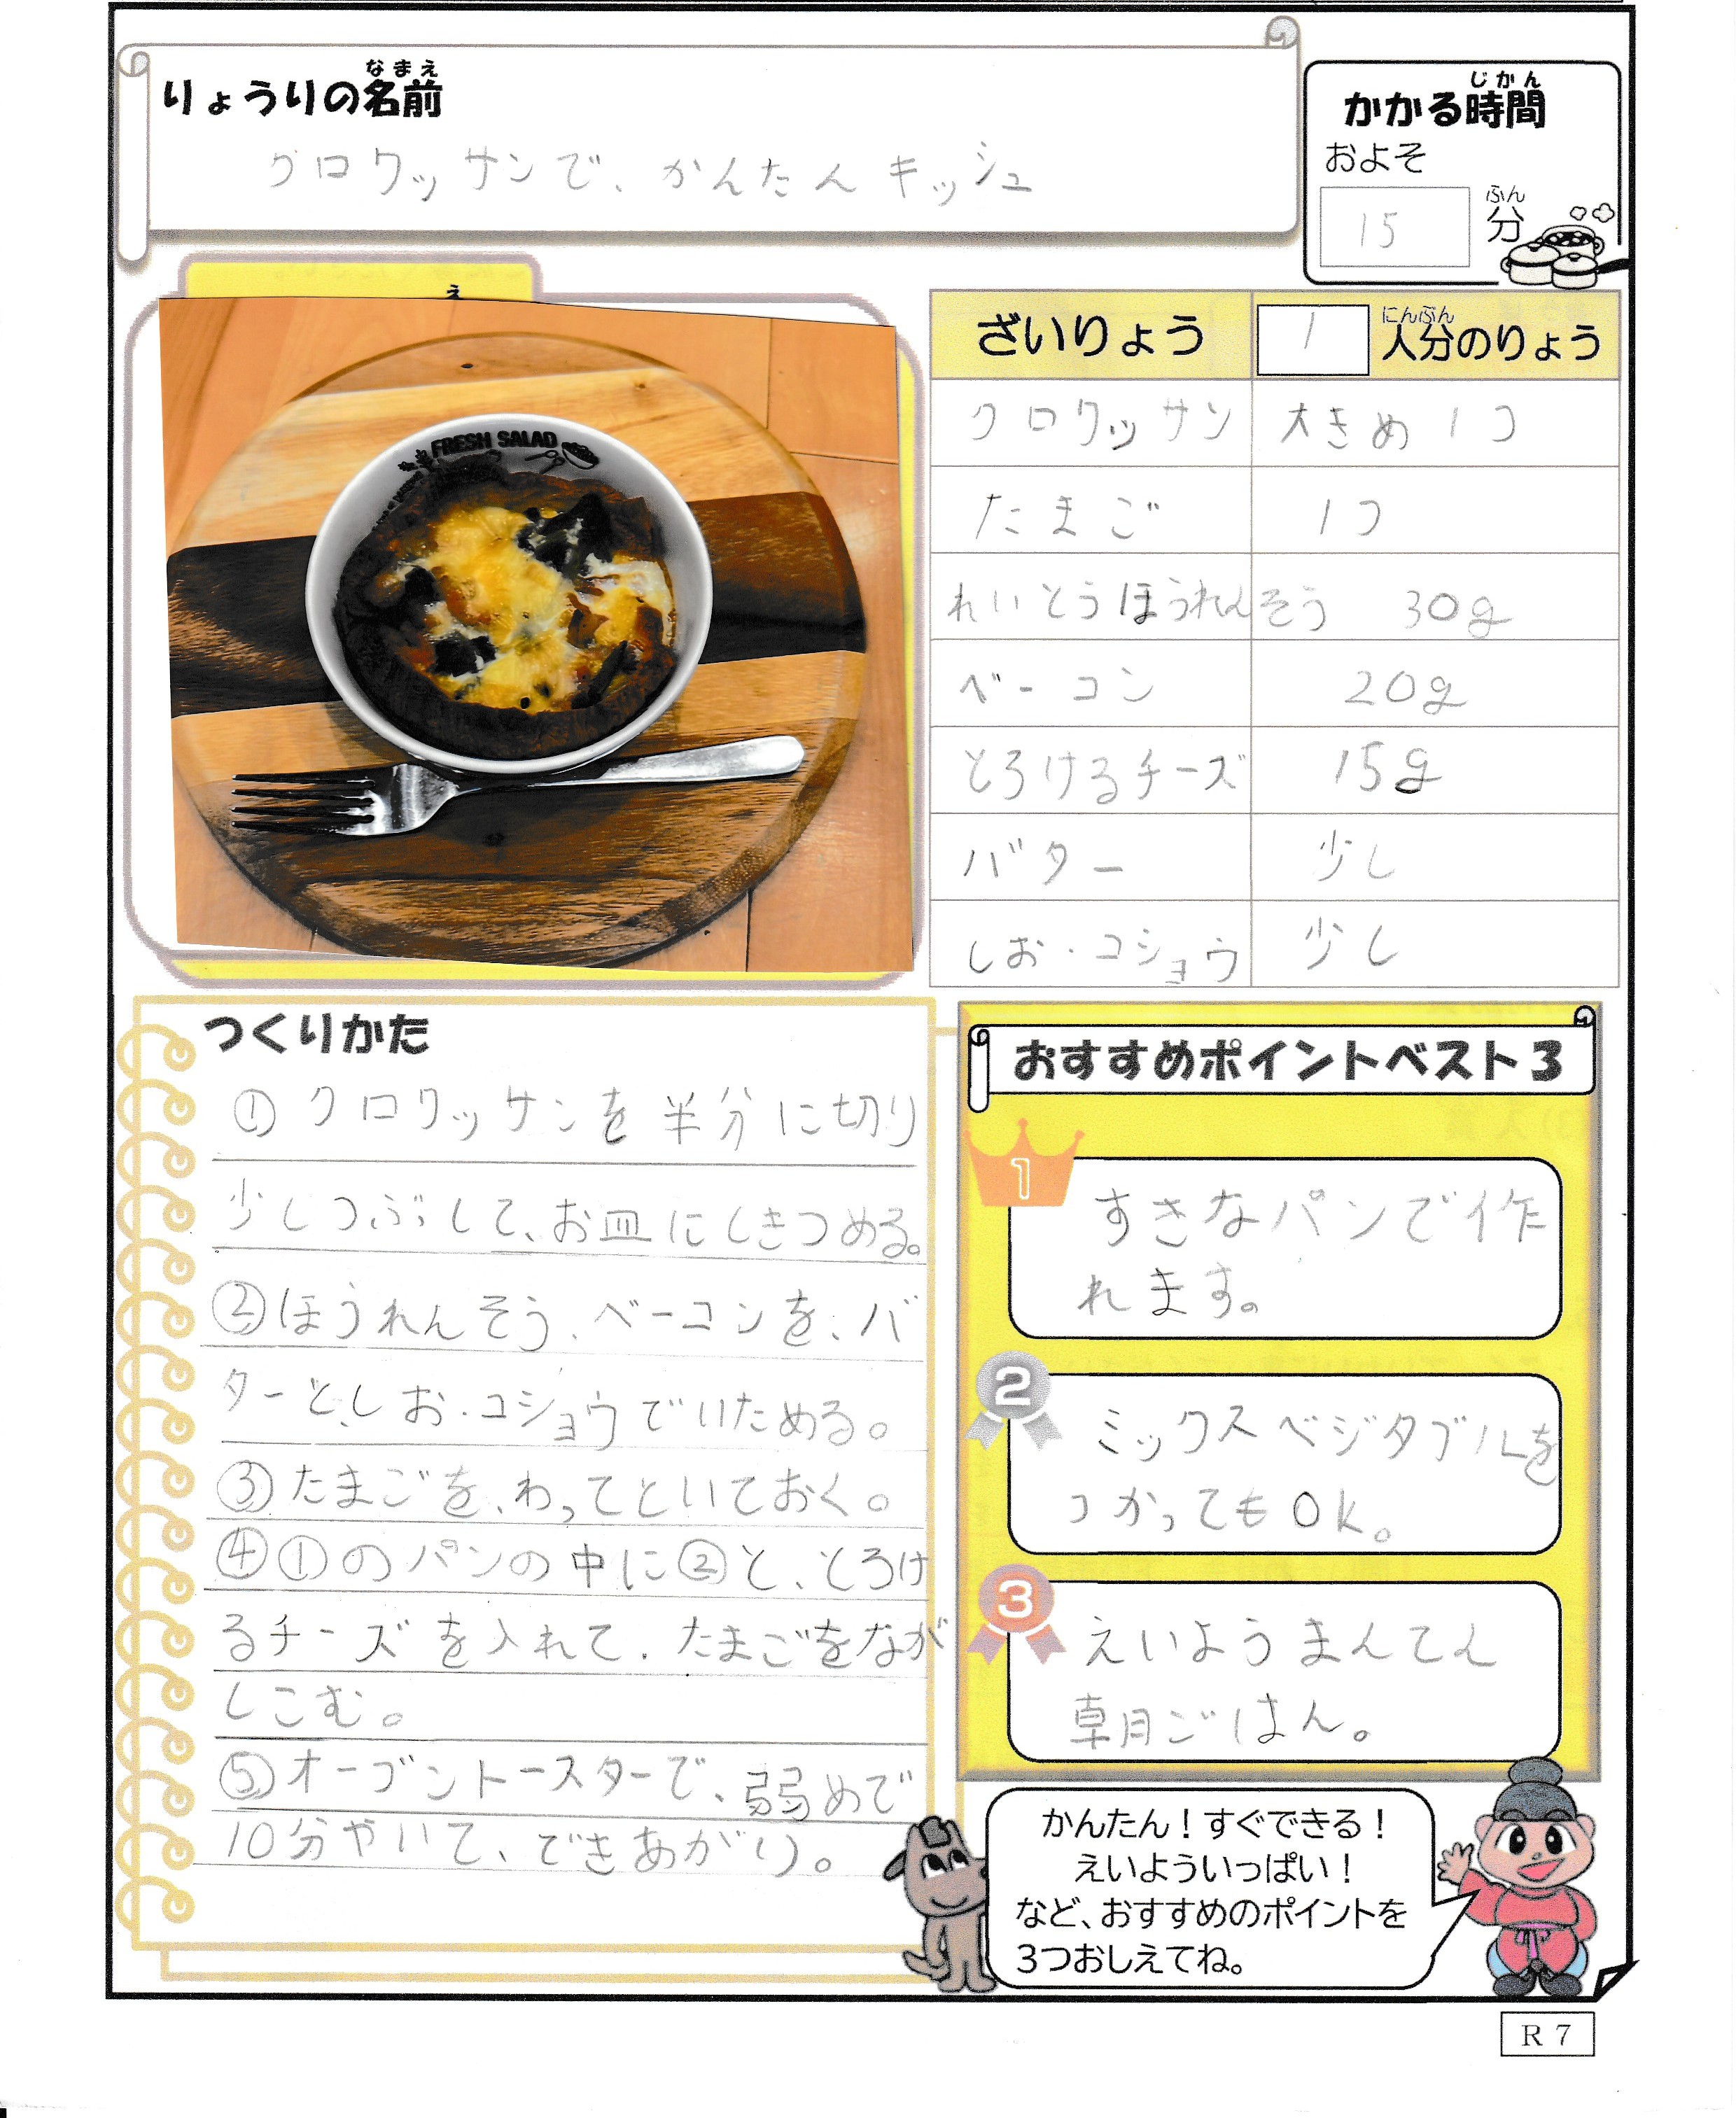 りょうりの名前
なまえ
クロワッサンで、かんたんキッシュ
かかる時間
じかん
およそ
15 分
ふん
え
FRESH SALAD
ざいりょう 1 人分のりょう
にんぶん
クロワッサン 大きめ1つ
たまご 1つ
れいとうほうれんそう 30g
ベーコン 20g
とろけるチーズ 15g
バター 少し
しお・コショウ 少し
つくりかた
①クロワッサンを半分に切り
少しつぶして、お皿にしきつめる。
②ほうれんそう、ベーコンを、バ
ターと、しお・コショウでいためる。
③たまごを、わってといておく。
④①のパンの中に②と、とろけ
るチーズを入れて、たまごをなが
しこむ。
⑤オーブントースターで、弱めで
10分やいて、できあがり。
おすすめポイントベスト3
1
すきなパンで作
れます。
2
ミックスベジタブルを
つかってもOK。
3
えいようまんてん
朝ごはん。
かんたん！すぐできる！
えいよういっぱい！
など、おすすめのポイントを
3つおしえてね。
R7